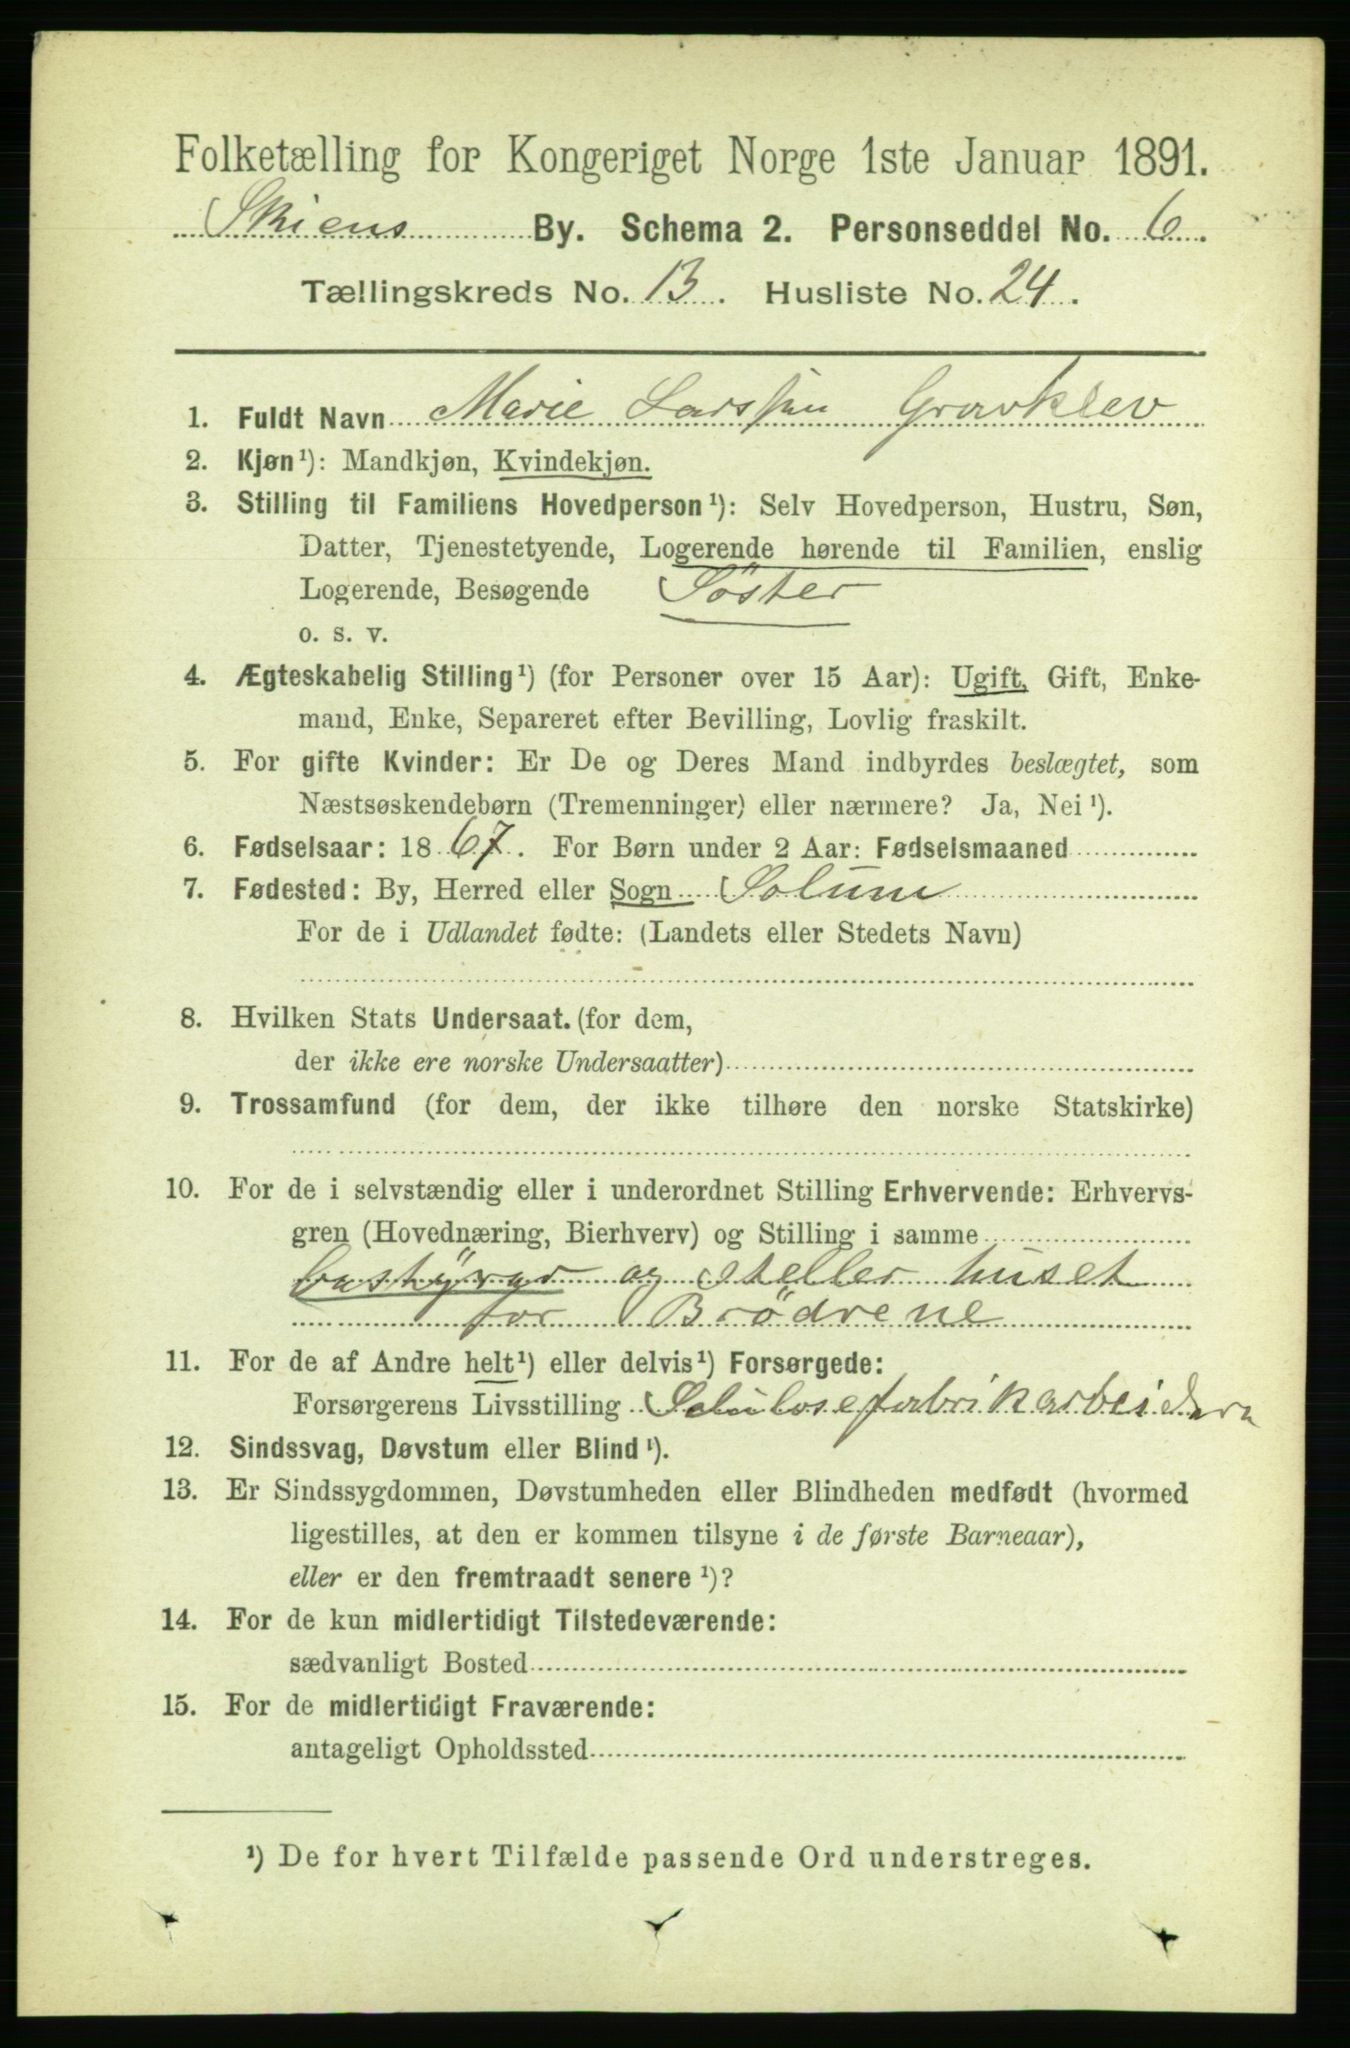 Folketælling for Kongeriget Norge 1ste Januar 1891.
Skiens By. Schema 2. Personseddel No. 6.
Tællingskreds No. 13. Husliste No. 24.
1. Fuldt Navn Marie Larssen Gravklev
2. Kjøn¹): Mandkjøn, Kvindekjøn.
3. Stilling til Familiens Hovedperson¹): Selv Hovedperson, Hustru, Søn,
Datter, Tjenestetyende, Logerende hørende til Familien, enslig
Logerende, Besøgende Söster
o. s. v.
4. Ægteskabelig Stilling¹) (for Personer over 15 Aar): Ugift, Gift, Enke-
mand, Enke, Separeret efter Bevilling, Lovlig fraskilt.
5. For gifte Kvinder: Er De og Deres Mand indbyrdes beslægtet, som
Næstsøskendebørn (Tremenninger) eller nærmere? Ja, Nei¹).
6. Fødselsaar: 1867. For Børn under 2 Aar: Fødselsmaaned
7. Fødested: By, Herred eller Sogn Solum
For de i Udlandet fødte: (Landets eller Stedets Navn)
8. Hvilken Stats Undersaat. (for dem,
der ikke ere norske Undersaatter)
9. Trossamfund (for dem, der ikke tilhøre den norske Statskirke)
10. For de i selvstændig eller i underordnet Stilling Erhvervende: Erhvervs-
gren (Hovednæring, Bierhverv) og Stilling i samme
bestÿrer og steller huset
for Brödrene
11. For de af Andre helt¹) eller delvis¹) Forsørgede:
Forsørgerens Livsstilling Selulosefabrikarbeidere
12. Sindssvag, Døvstum eller Blind¹).
13. Er Sindssygdommen, Døvstumheden eller Blindheden medfødt (hvormed
ligestilles, at den er kommen tilsyne i de første Barneaar),
eller er den fremtraadt senere¹)?
14. For de kun midlertidigt Tilstedeværende:
sædvanligt Bosted
15. For de midlertidigt Fraværende:
antageligt Opholdssted
¹) De for hvert Tilfælde passende Ord understreges.